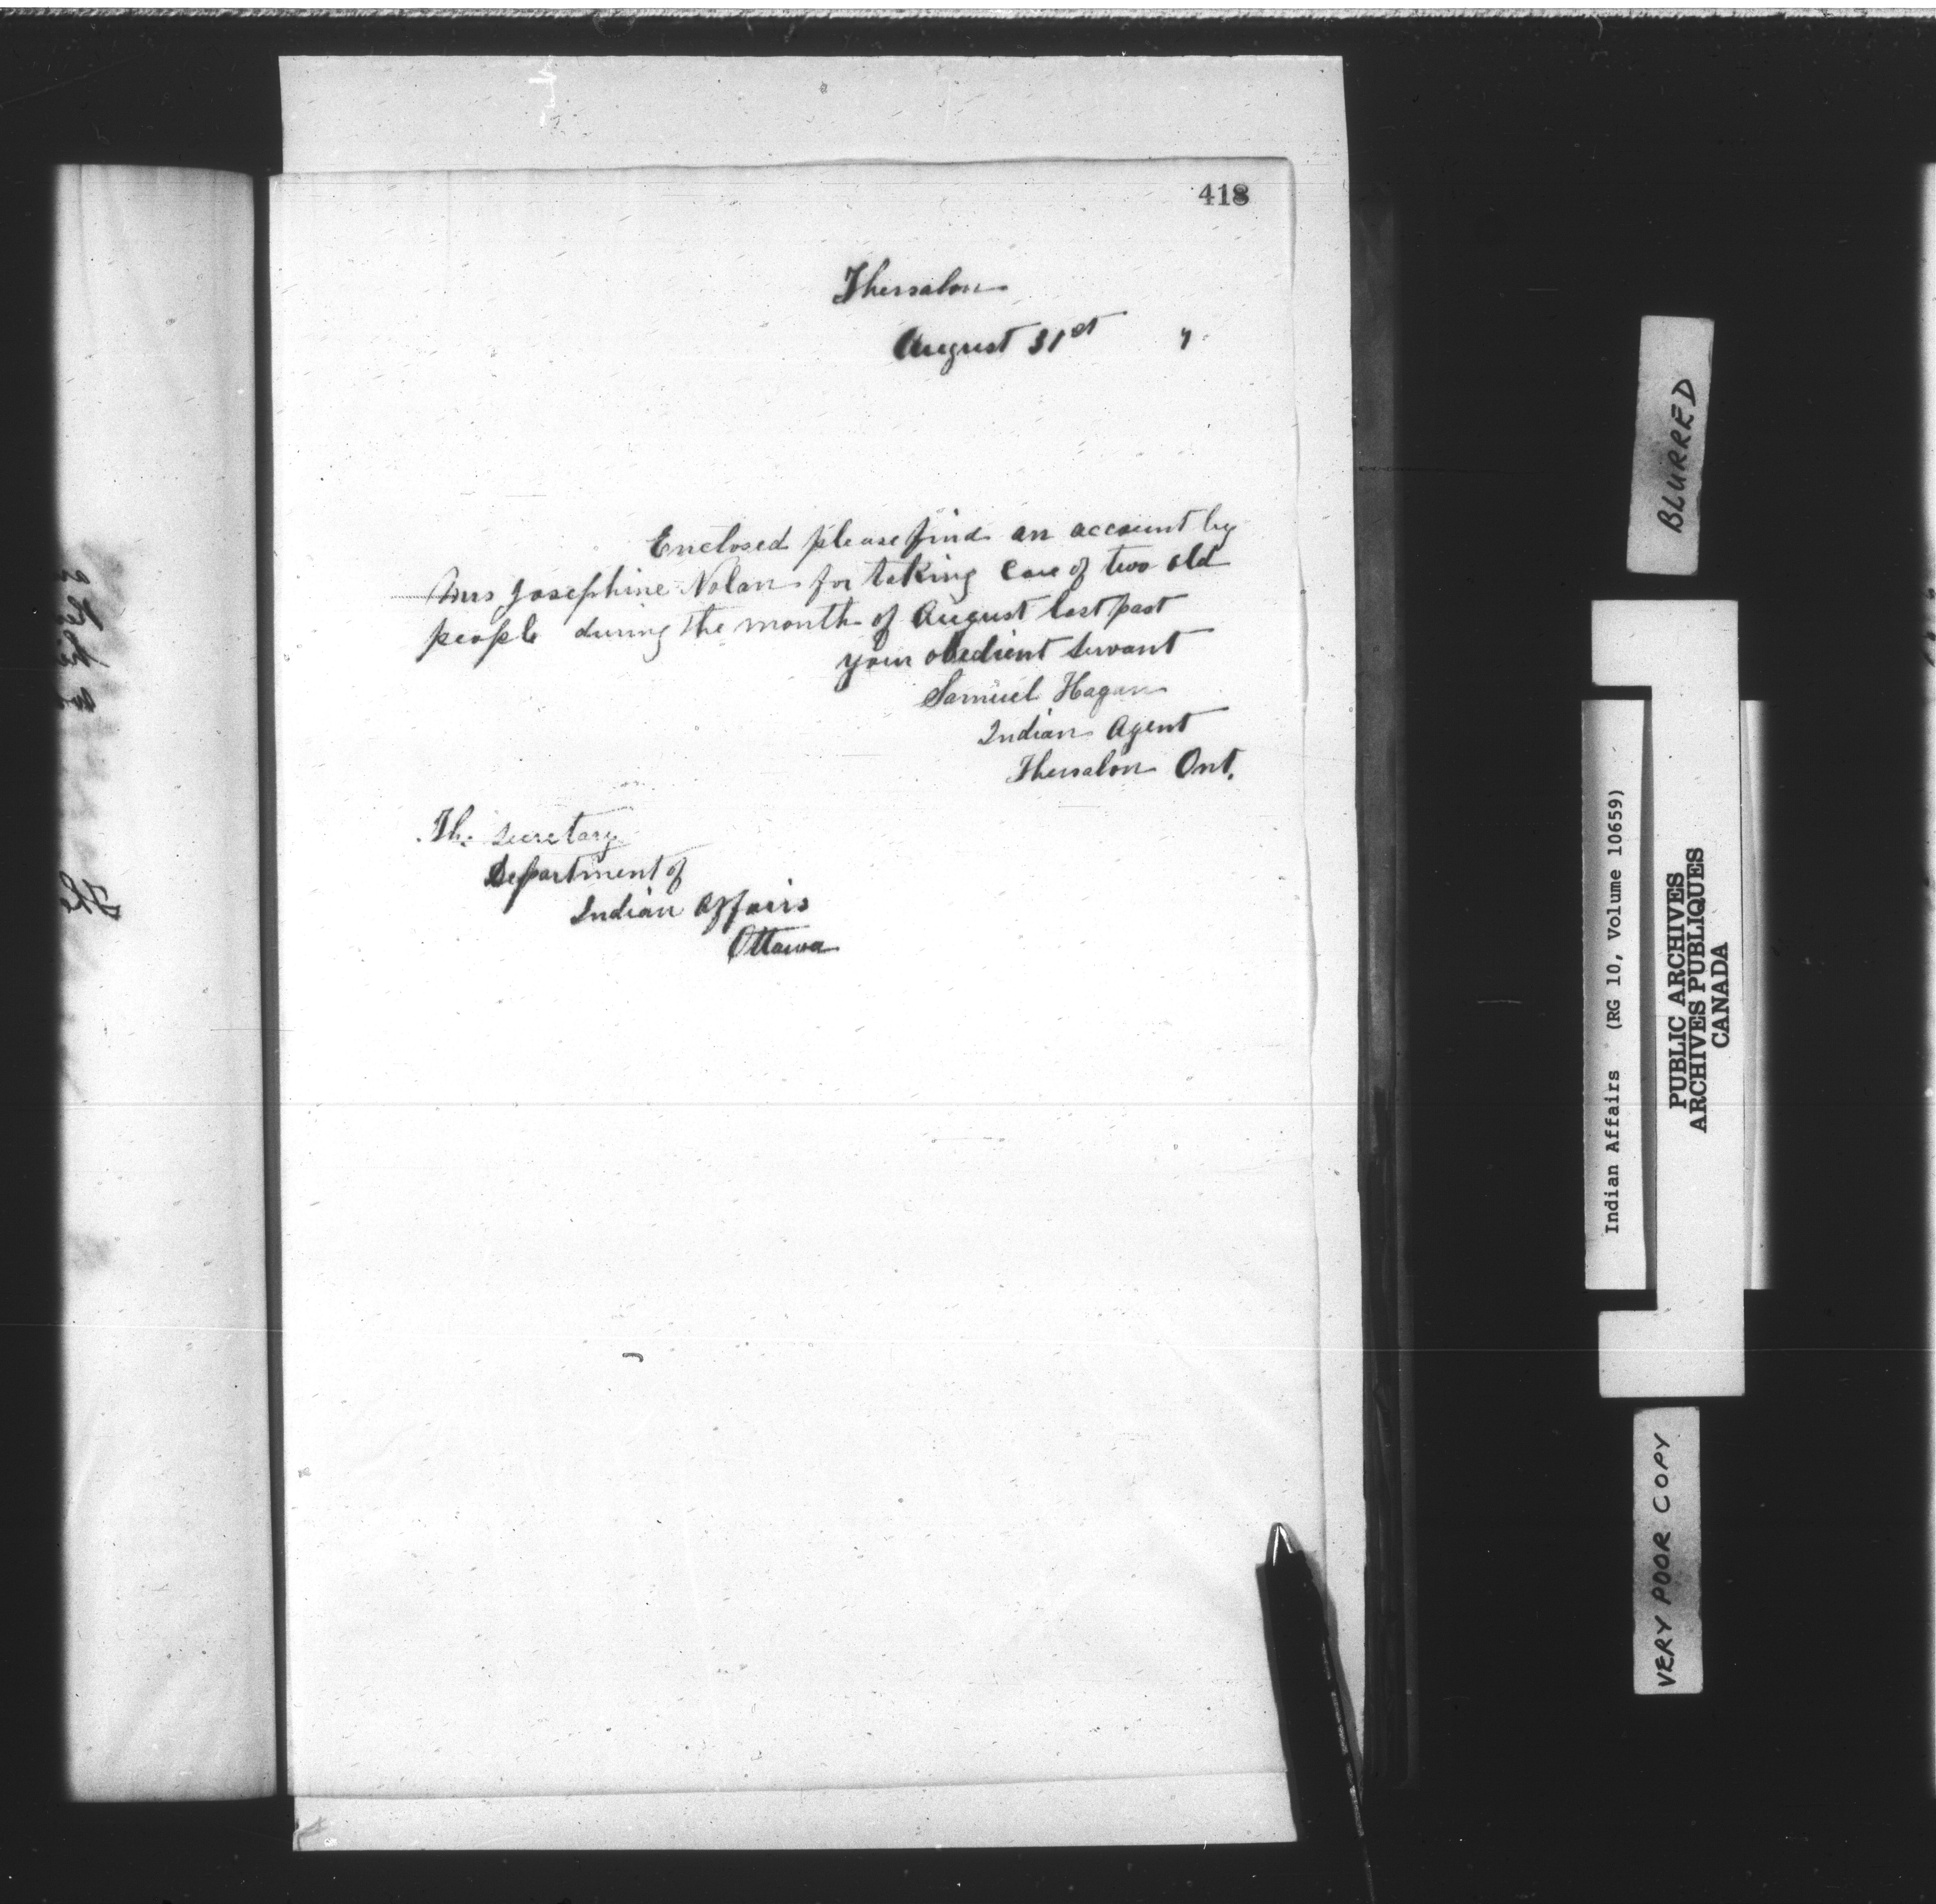 418
Thessalon
August 31st 7.
Enclosed please find an account by
Mrs Josephine Nolan for taking care of two old
people during the month of August last past
your obedient servant
Samuel Hagan
Indian Agent
Thessalon Ont.
The Secretary
Department of
Indian Affairs
Ottawa
BLURRED
Indian Affairs (RG 10, Volume 10659)
PUBLIC ARCHIVES
ARCHIVES PUBLIQUES
CANADA
VERY POOR COPY